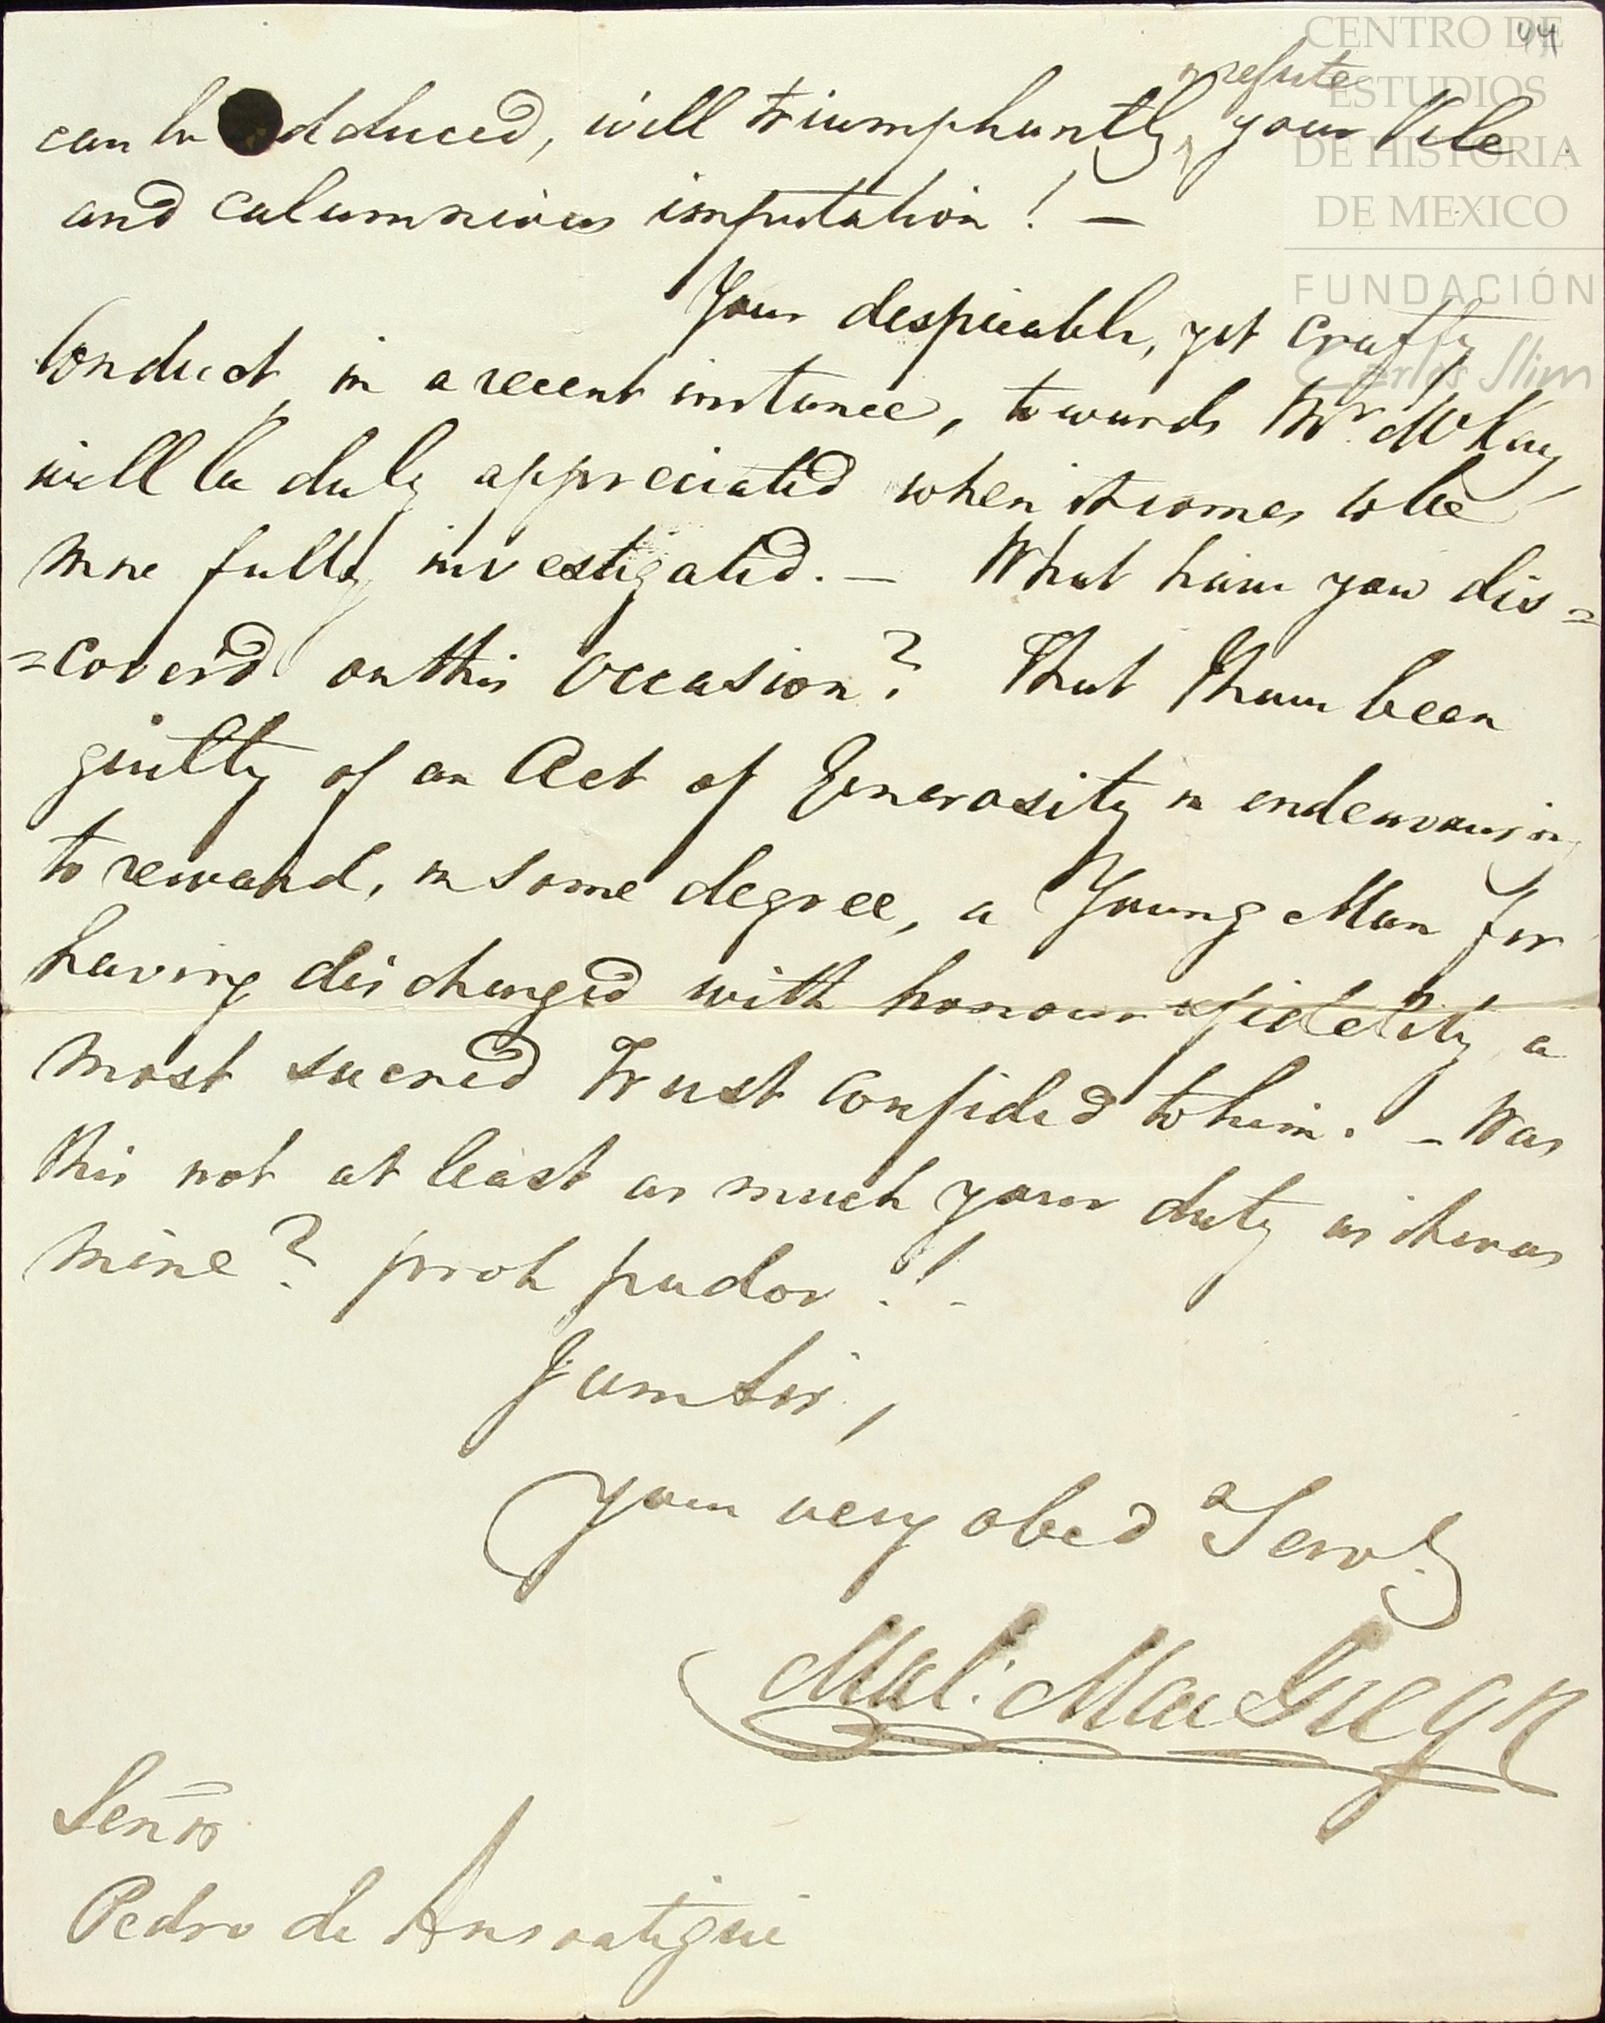 44
CENTRO DE
ESTUDIOS
DE HISTORIA
DE MEXICO
FUNDACIÓN
Carlos Slim
refute
can be adduced, will triumphantly, your Vile
and calumnious imputation! —
Your despicable, yet crafty
Conduct, in a recent instance, towards Mr. McKay
will be duly appreciated when it comes to be
more fully investigated. — What have you dis=
=cover'd on this Occasion? That I have been
guilty of an Act of Generosity in endeavouring
to reward, in some degree, a Young Man for
having discharged with honour & fidelity a
most sacred Trust confided to him. – Was
this not at least as much your duty as it was
mine? proh pudor!! -
I am Sir,
Your very obed Servt.
Mal: MacGregor
Señor
Pedro de Ansoatigui